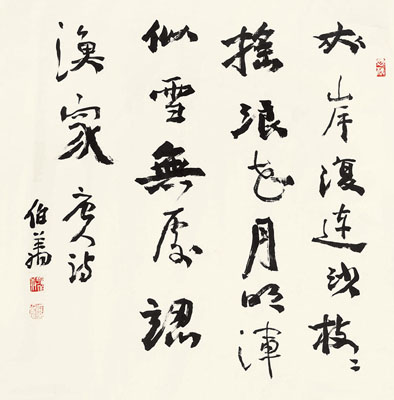 夾岸復連沙枝〻
搖浪花月明渾
似雪無處認
漁家 唐人詩
伯